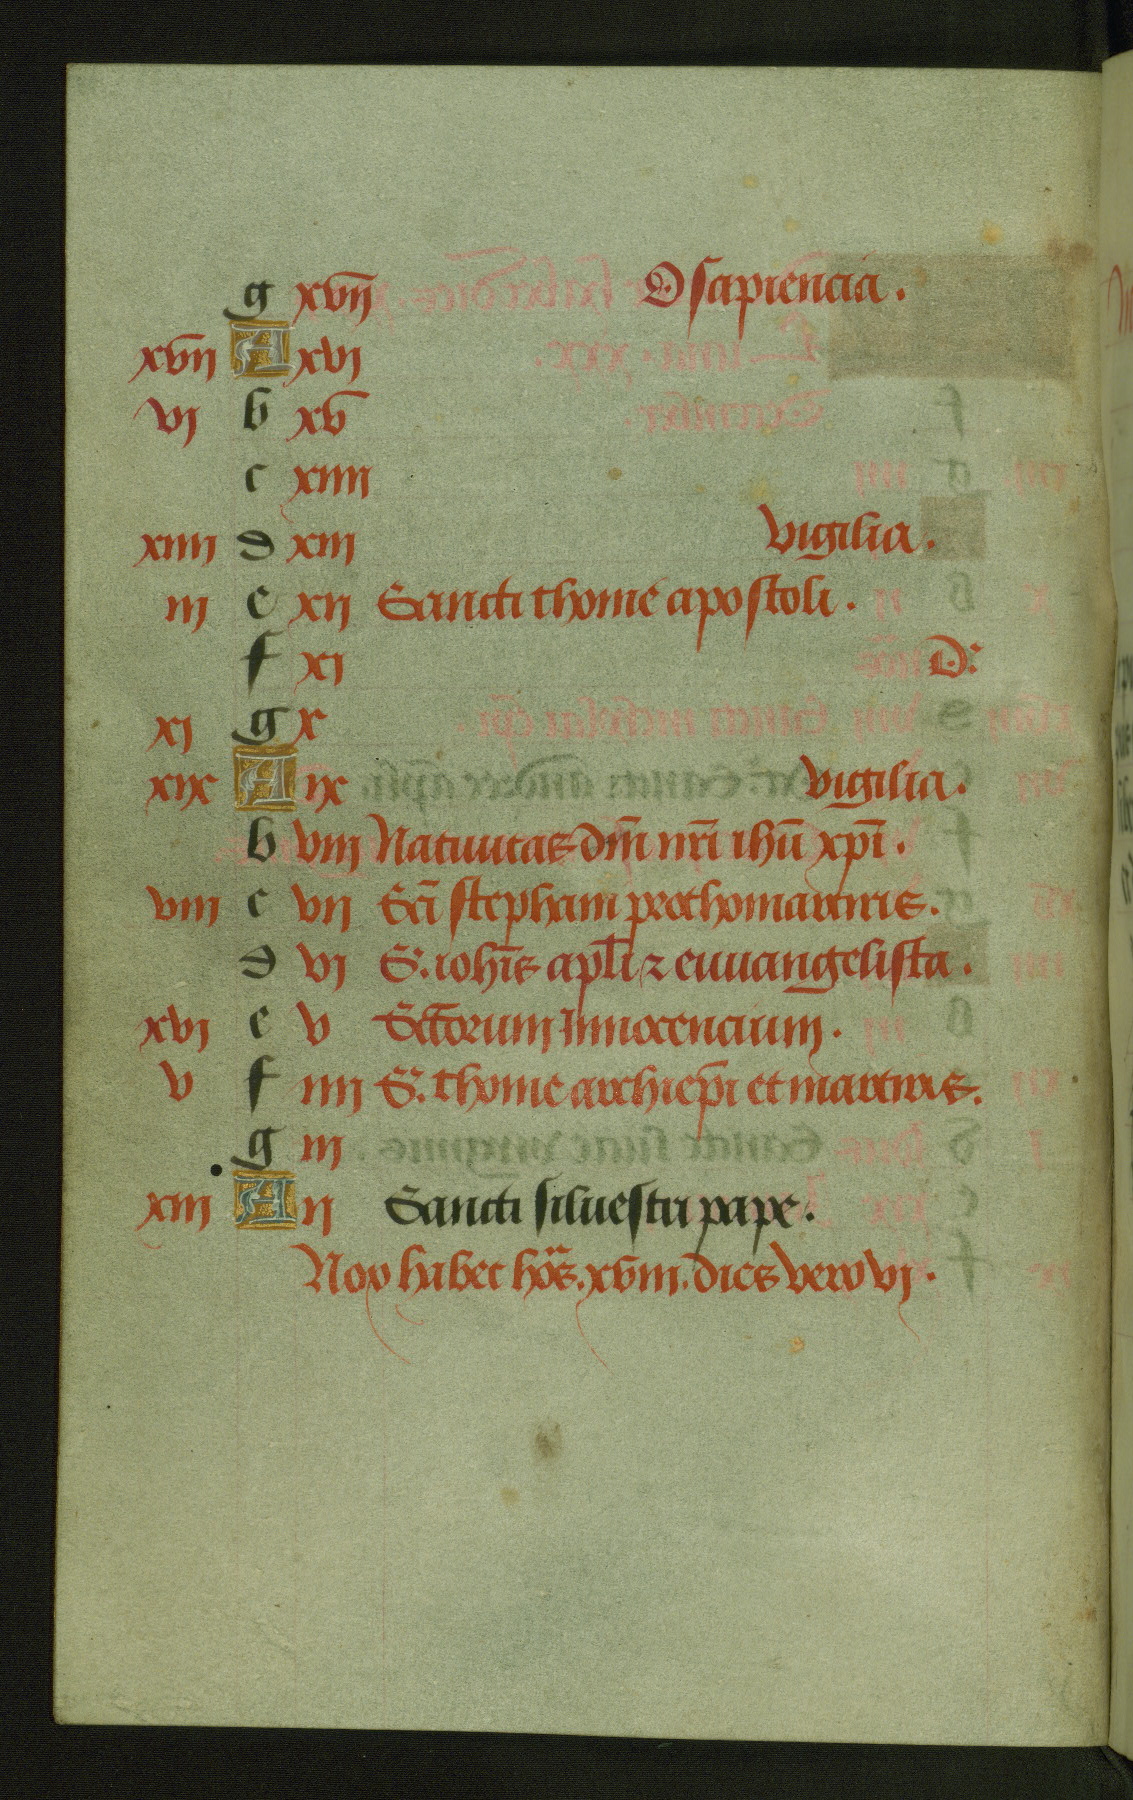 g xvii O sapiencia.
xvii A xvi
vi b xv
c xiiii
xiiii d xiii vigilia.
iii e xii Sancti thome apostoli.
f xi D:
xi g x
xix A ix vigilia.
b viii Natiuitas dn̄i nr̄i ihū xp̄i.
viii c vii Sc̄i stephani prothomartiris.
d vi S. ioh̄is apl̄i ⁊ euuangelista.
xvi e v Sct̄orum Innocencium.
v f iiii S. thome archiep̄i et martiris.
g iii
xiii A ii Sancti siluestri pape.
Nox habet hōs. xviii. dies vero vi.